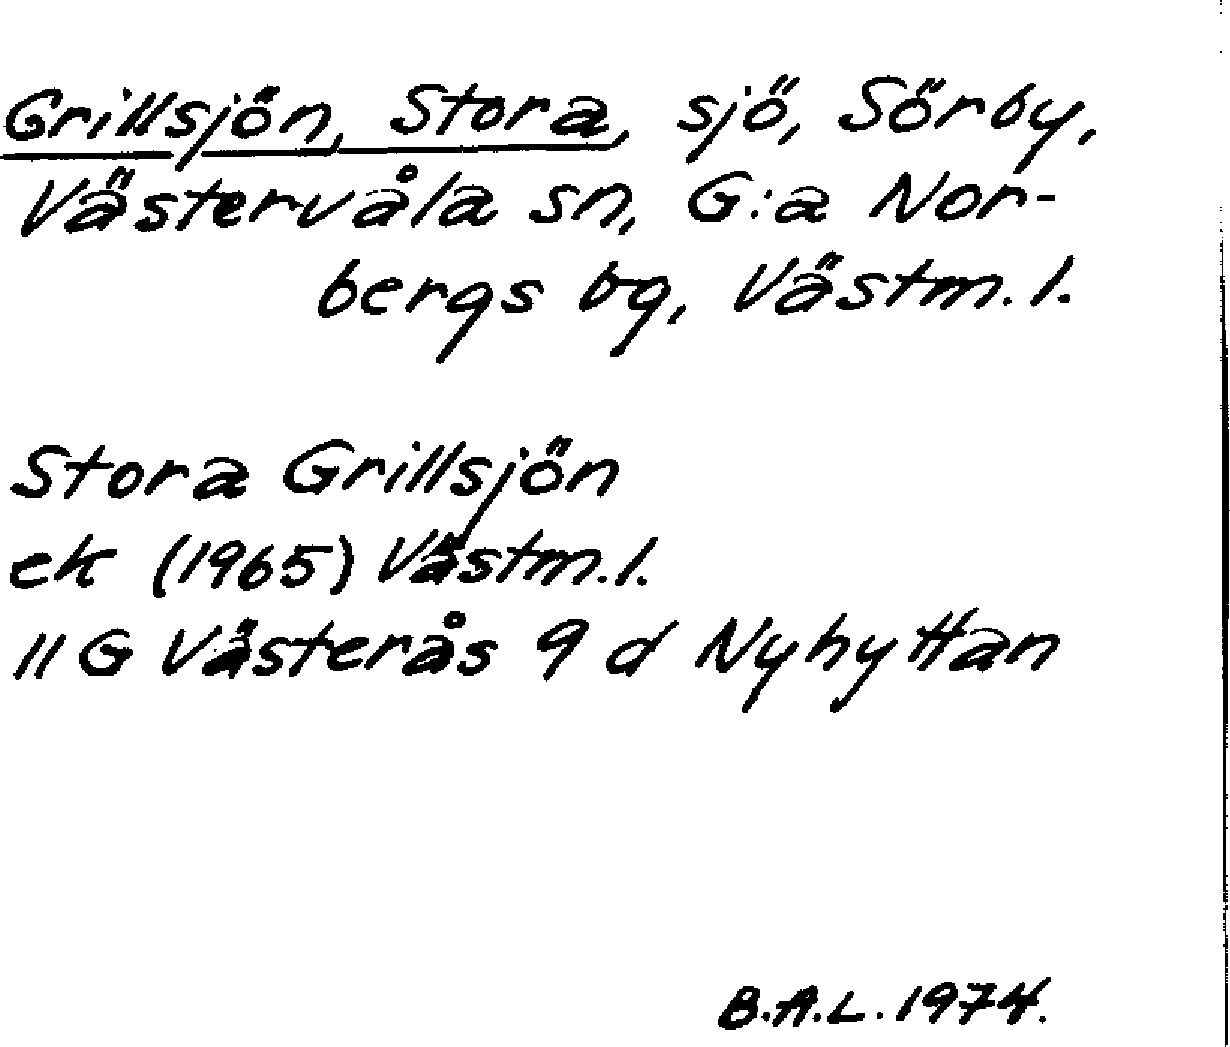 Grillsjön, Stora, sjö, Sörby,
Västervåla sn, G:a Nor-
bergs bg, Västm. l.
Stora Grillsjön
ek (1965) Västm. l.
11 G Västerås 9 d Nyhyttan
B.A.L. 1974.